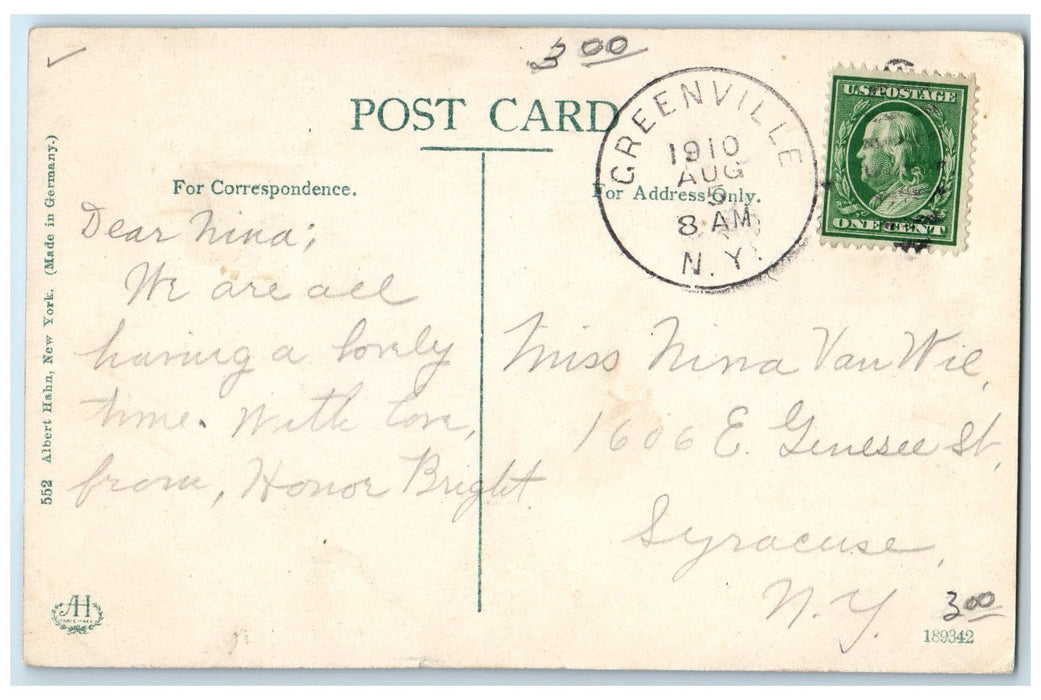 3 00
POST CARD
GREENVILLE
1910
AUG
5
8 AM
N. Y.
U.S. POSTAGE
ONE CENT
For Correspondence.
For Address Only.
Dear Nina;
We are all
having a lovely
time. With love,
from, Honor Bright
Miss Nina Van Wie,
1606 E. Genesee St,
Syracuse,
N. Y.
3 00
189342
552 Albert Hahn, New York. (Made in Germany.)
AH
TRADE MARK